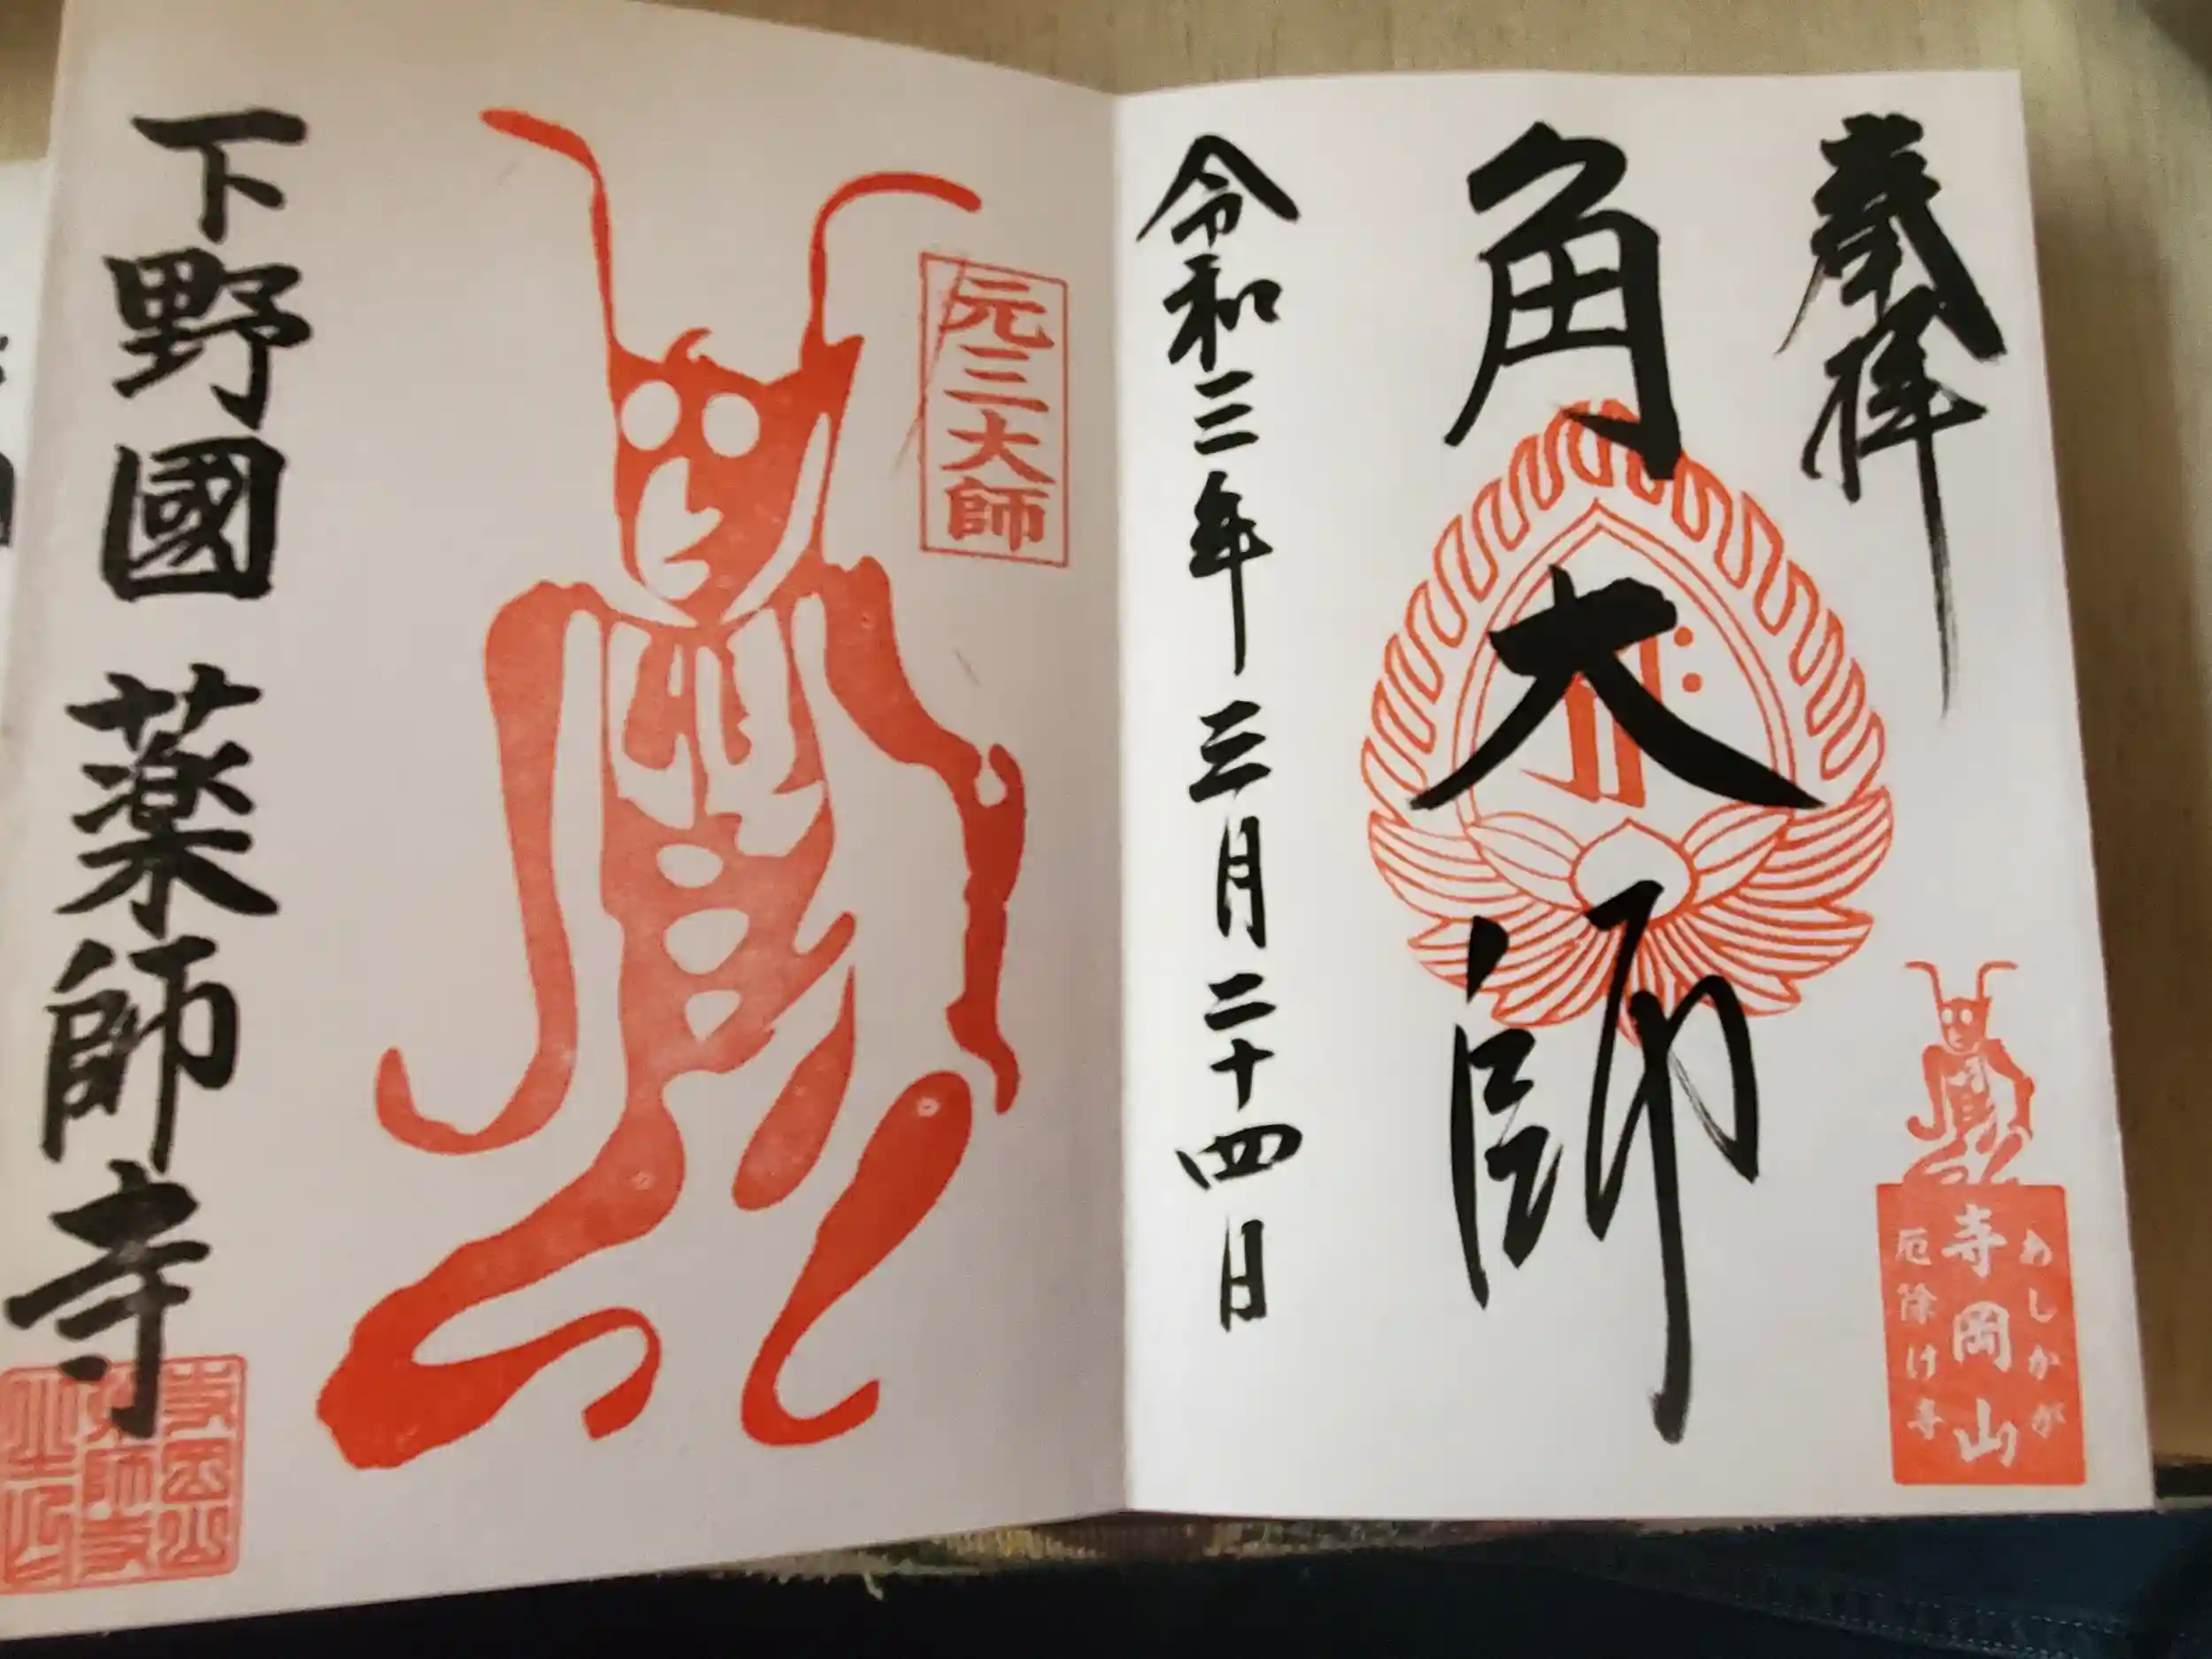 奉拝
角大師
令和三年三月二十四日
あしかが
寺岡山
厄除け寺
元三大師
下野國 薬師寺